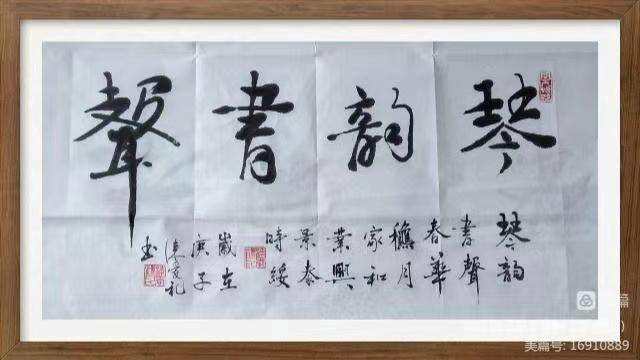 琴韵書聲
琴韵
書聲
春華
穐月
家和
業興
景泰
時綏
歲在
庚子
书
篇
美篇号: 16910889